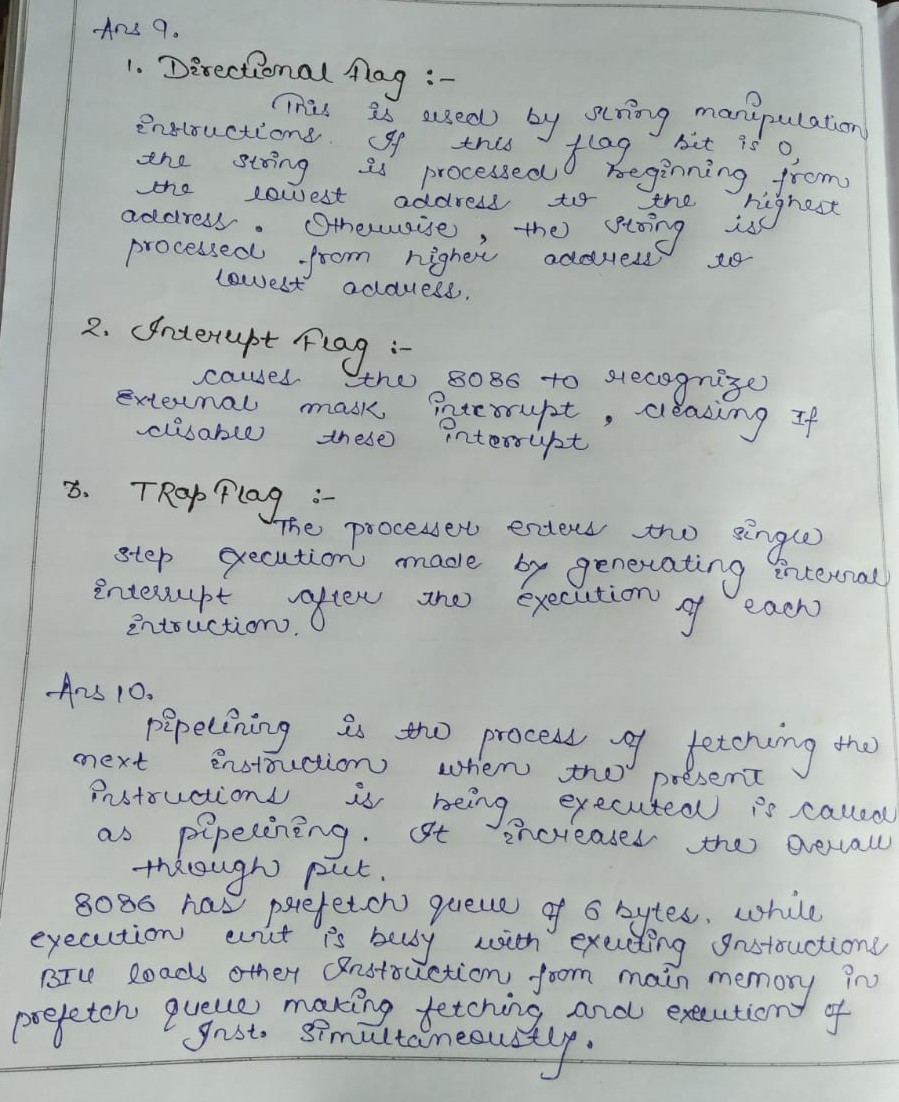 Ans 9.
1. Directional flag :-
This is used by string manipulation
instructions. If this flag bit is 0,
the string is processed beginning from
the lowest address to the highest
address. Otherwise, the string is
processed from higher address to
lowest address.
2. Interupt Flag :-
causes the 8086 to recognize
external mask interrupt, cleasing If
disable these interrupt
3. TRap Flag :-
The processer enters the single
step execution made by generating internal
interrupt after the execution of each
intruction.
Ans 10.
pipelining is the process of fetching the
next instruction when the present
instructions is being executed is called
as pipelining. It increases the overall
through put.
8086 has prefetch queue of 6 bytes. while
execution unit is busy with exeuting Instructions
BIU loads other Instruction from main memory in
prefetch queue making fetching and execution of
Inst. simultaneoustly.